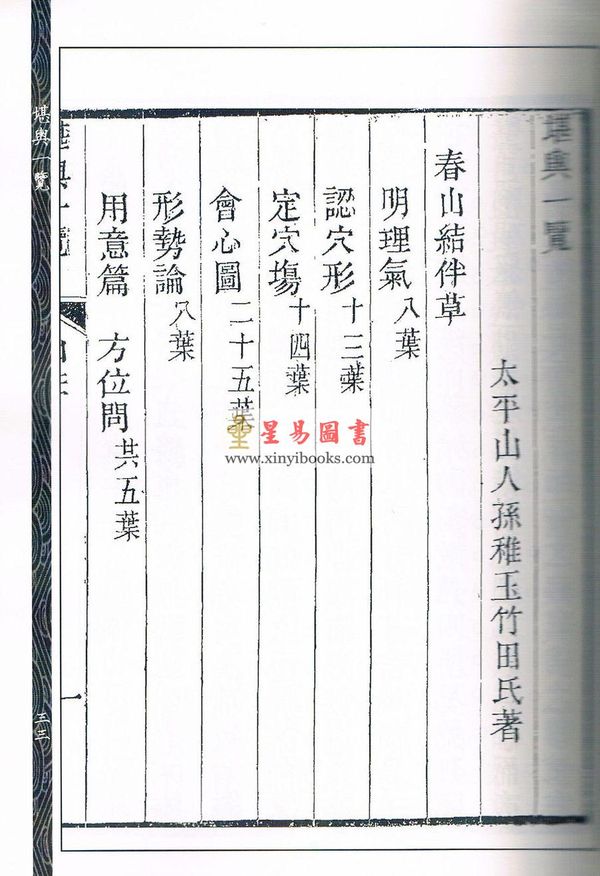 堪輿一覽
太平山人孫稚玉竹田氏著
春山結伴草
明理氣 八葉
認穴形 十三葉
定穴塲 十四葉
會心圖 二十五葉
形勢論 八葉
用意篇 方位問 共五葉
一
堪輿一覽
三三
星易圖書
www.xinyibooks.com